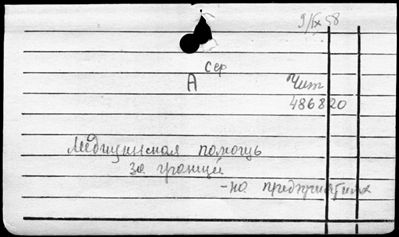 9/IX 58
Сер
А
Чит
486820
Медицинская помощь
за границей
-на предприятиях